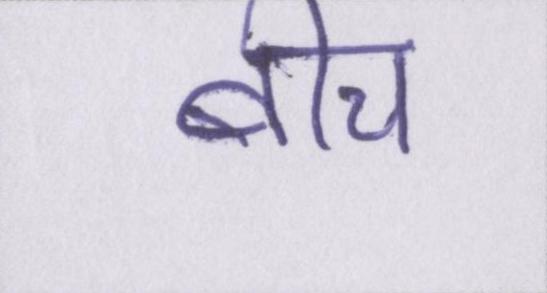 बीच